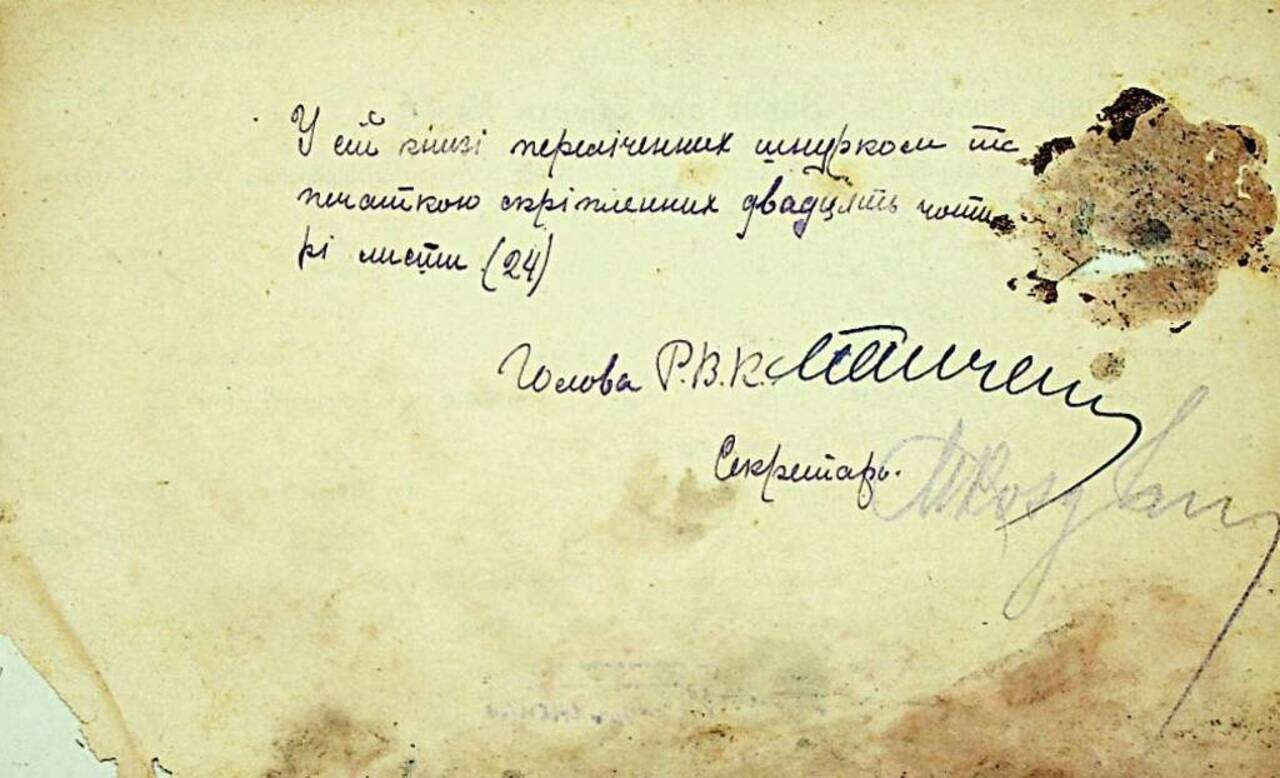 У сій книзі переліченних шнурком та
печаткою скріпленних двадцять чоти
рі листи (24)
Голова Р.В.К.
Секретарь.